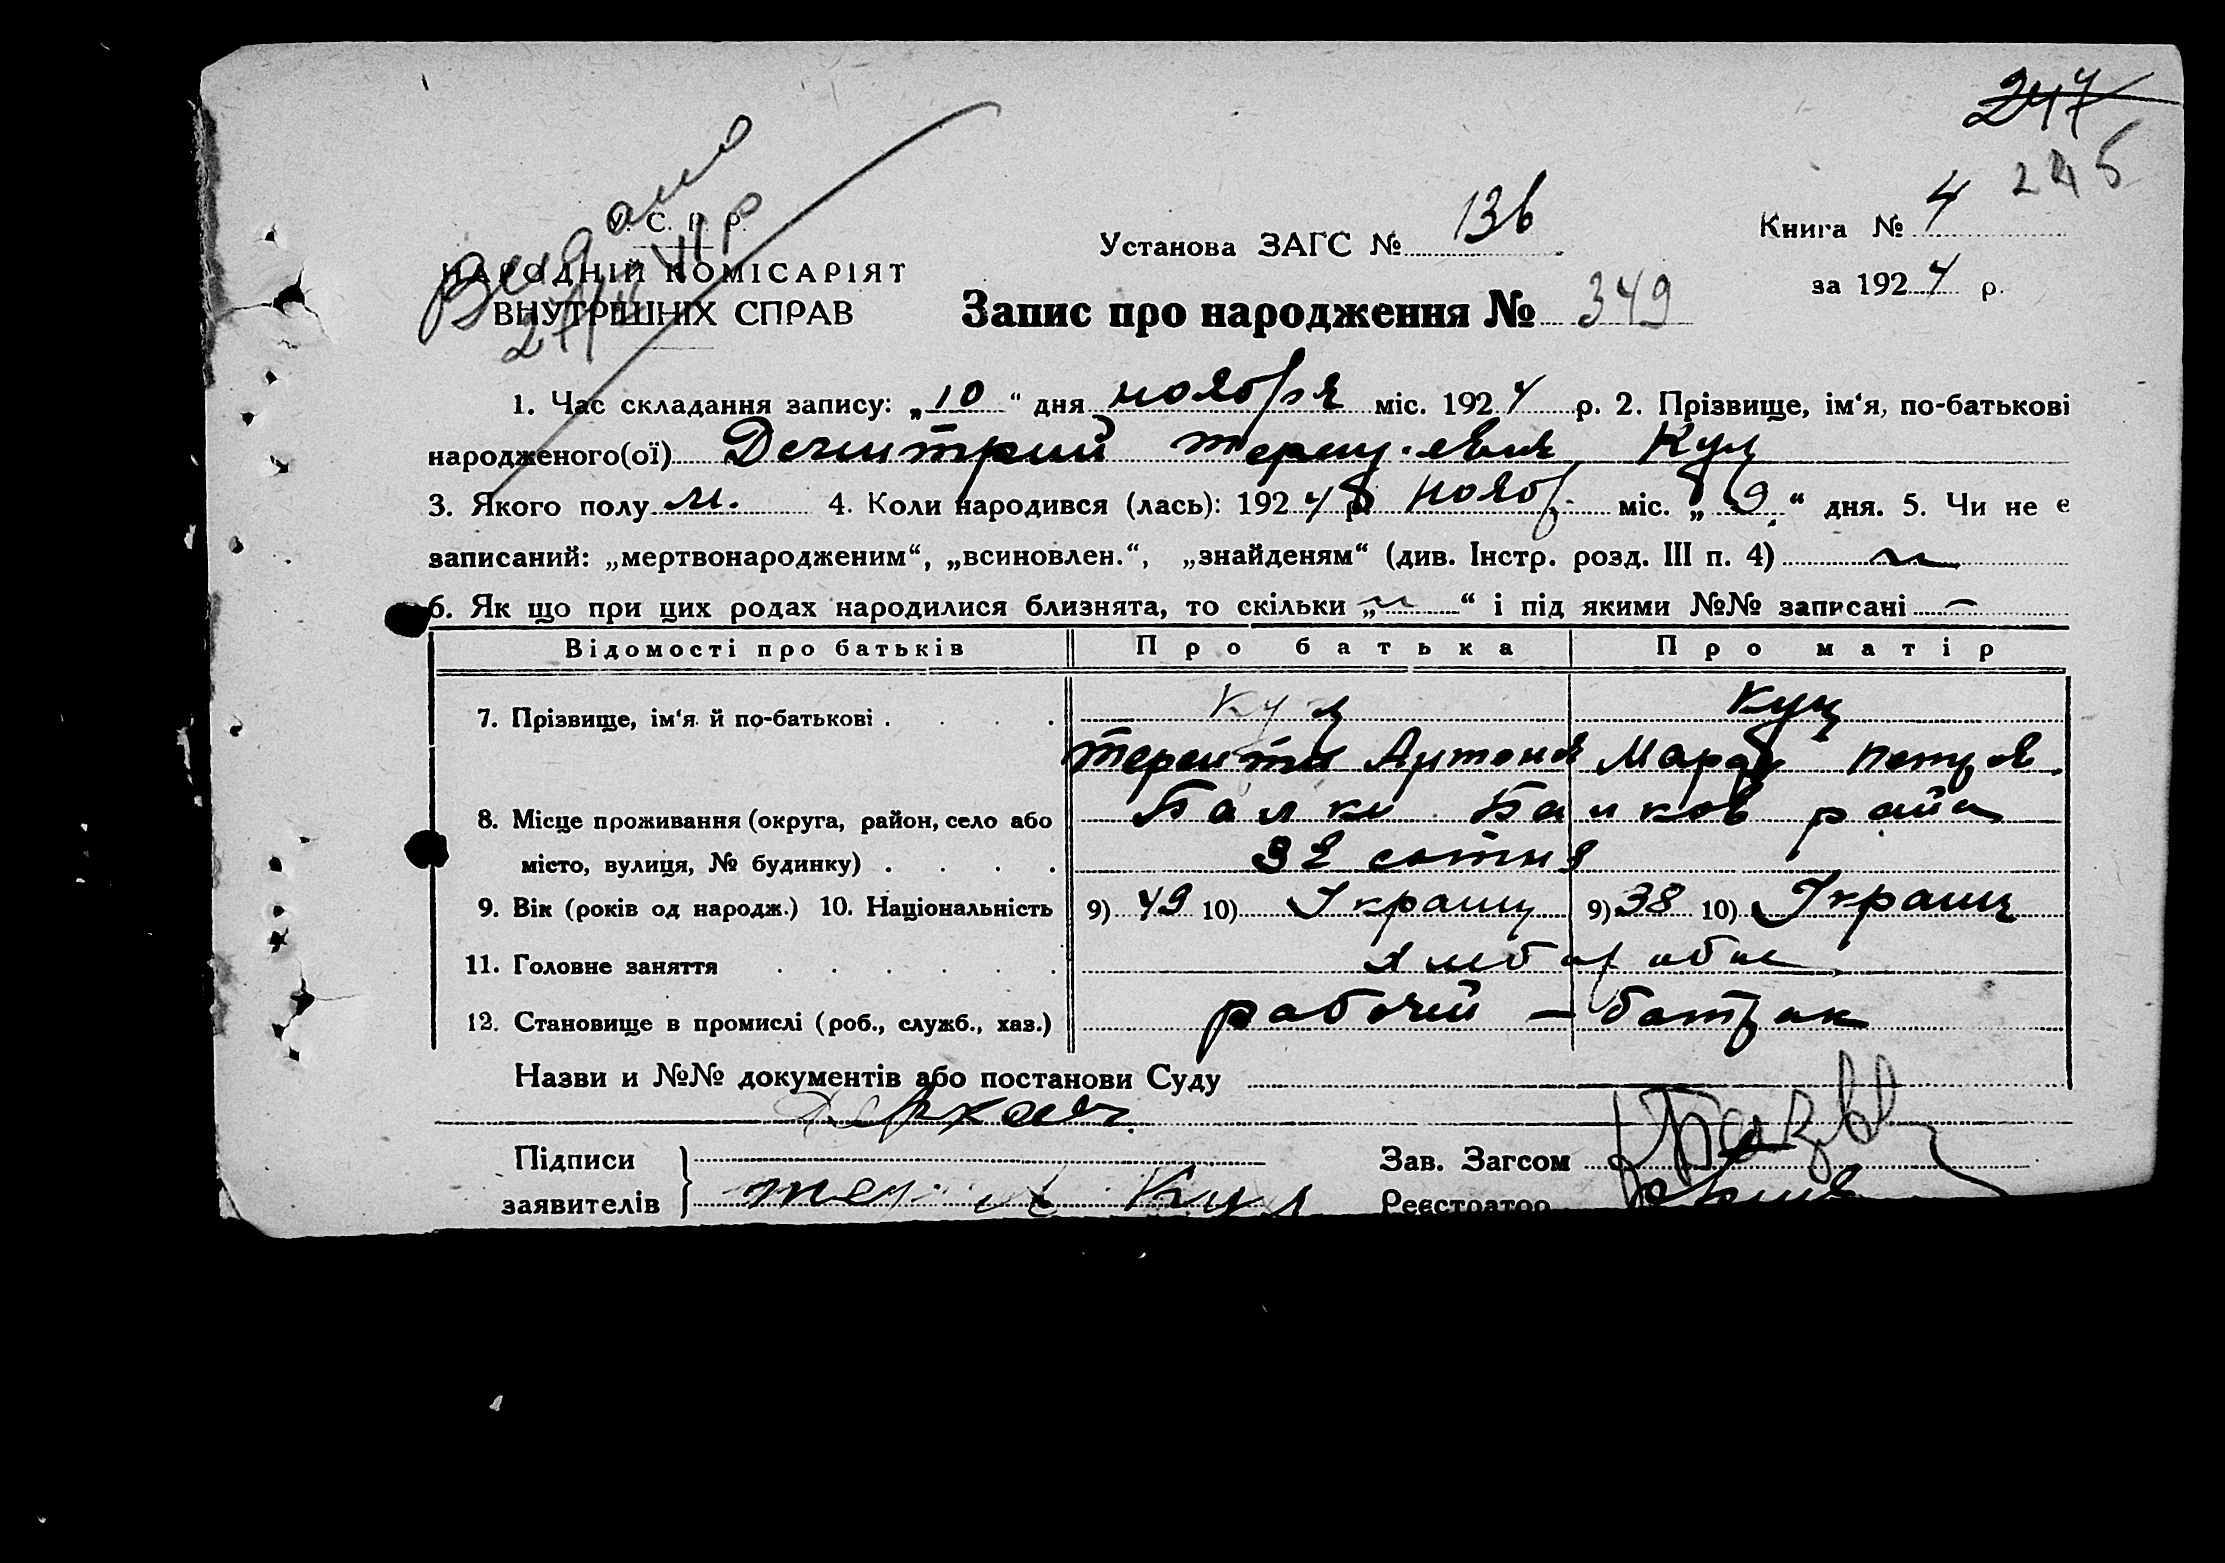 247
245
Видано
У. С. Р. Р.
Установа ЗАГС № 136
Книга № 4
НАРОДНІЙ КОМІСАРІЯТ
за 1924 р.
ВНУТРІШНІХ СПРАВ
Запис про народження № 349
1. Час складання запису: „10“ дня ноября міс. 1924 р. 2. Прізвище, ім‘я, по-батькові
народженого(ої) Демитрий Куц
3. Якого полу м. 4. Коли народився (лась): 1924 р. нояб. міс. „9“ дня. 5. Чи не є
записаний: „мертвонародженим“, „всиновлен.“, „знайденям“ (див. Інстр. розд. III п. 4)
6. Як що при цих родах народилися близнята, то скільки „ “ і під якими №№ записані
Відомості про батьків Про батька Про матір
7. Прізвище, ім‘я й по-батькові . . . . Куц Куц
Терентий Антонов
8. Місце проживання (округа, район, село або Балки Балков район
місто, вулиця, № будинку) . . . . 32 сотня
9. Вік (років од народж.) 10. Національність 9) 49 10) Украинц 9) 38 10) Украинц
11. Головне заняття . . . . . . хлебороб
12. Становище в промислі (роб., служб., хаз.) рабочий — батрак
Назви и №№ документів або постанови Суду
Підписи
Зав. Загсом
заявителів Куц
Реєстратор